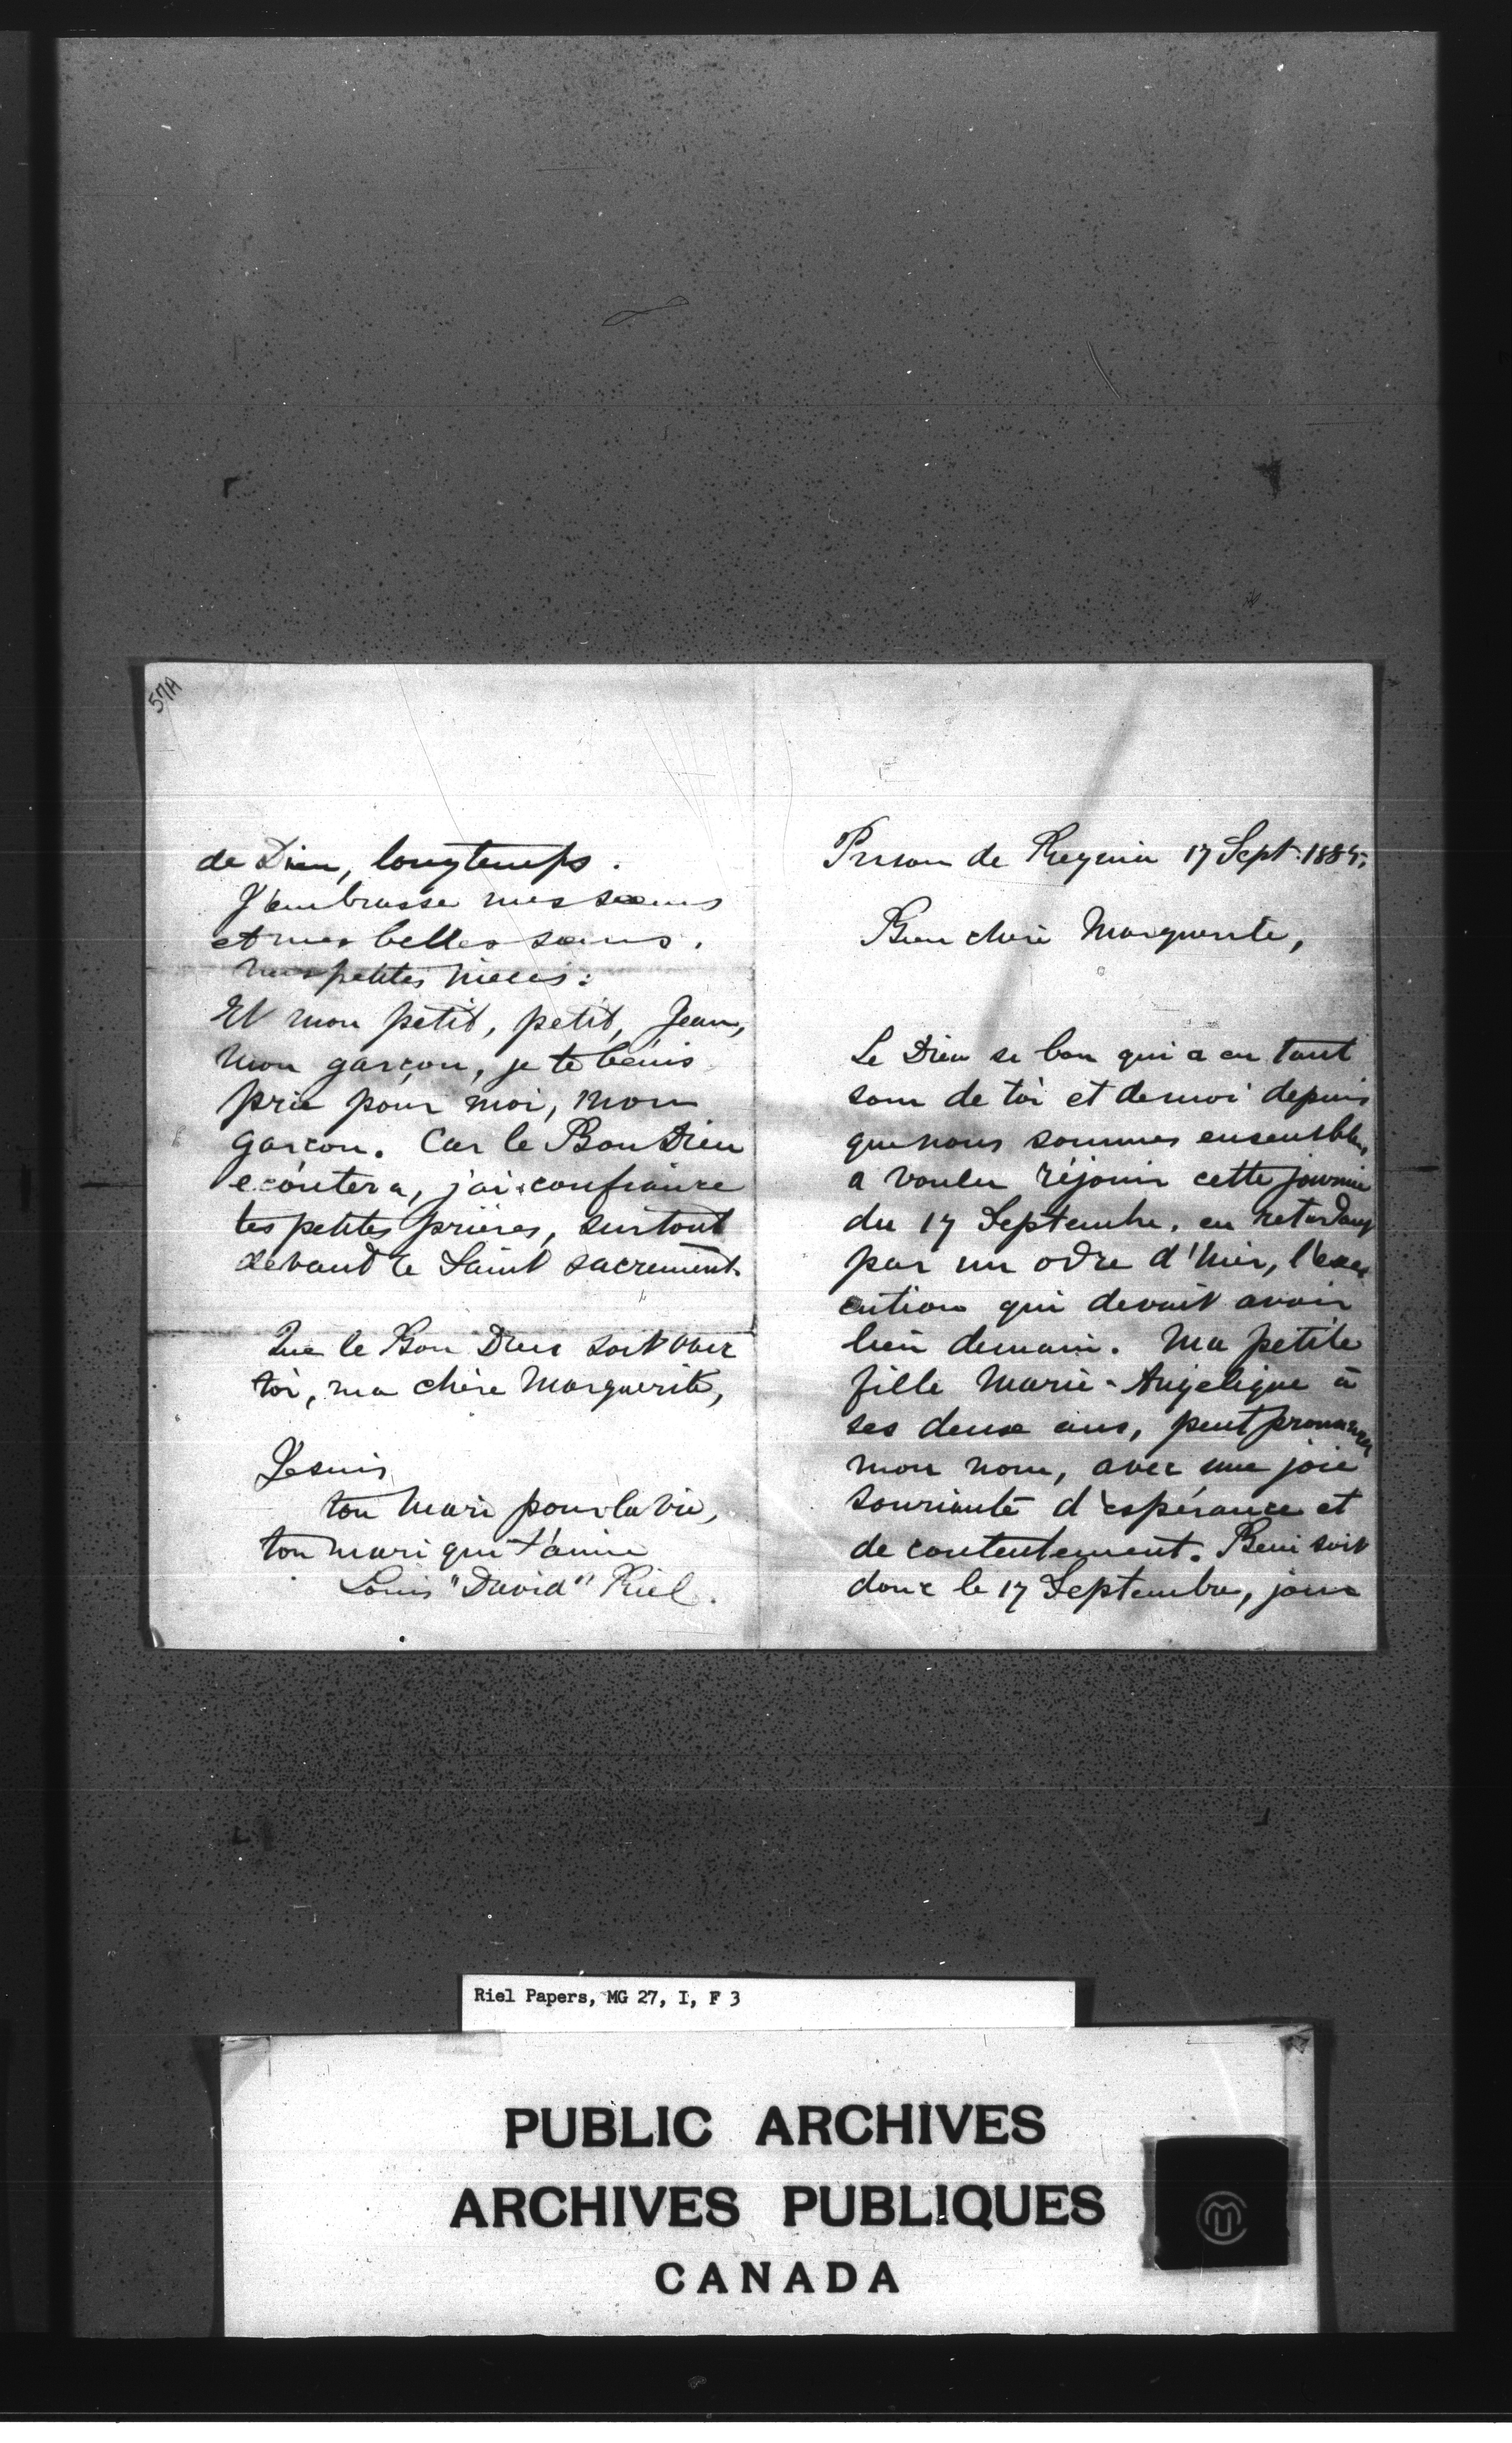 57A
de Dieu, longtemps.
J'embrasse mes soeurs
et mes belles soeurs.
mes petites nièces:
Et mon petit, petit, Jean,
mon garçon, je te bénis
prie pour moi, mon
garçon. Car le Bon Dieu
ecoutera, j'ai confiance
tes petites prières, surtout
devant le Saint sacrement.
Que le Bon Dieu soit avec
toi, ma chère Marguerite,
Je suis
ton mari pour la vie,
ton mari qui t'aime
Louis "David" Riel.
Prison de Regina 17 Sept. 1885,
Bien chère Marguerite,
Le Dieu si bon qui a eu tant
soin de toi et de moi depuis
que nous sommes ensembles,
a voulu réjouir cette journée
du 17 Septembre, en retardant
par un odre d'hier, l'exé
cution qui devait avoir
lieu demain. Ma petite
fille Marie-Angelique à
ses deux ans, peut prononcer
mon nom, avec une joie
souriante d'espérance et
de contentement. Beni soit
donc le 17 Septembre, jour
Riel Papers, MG 27, I, F 3
PUBLIC ARCHIVES
ARCHIVES PUBLIQUES
CANADA